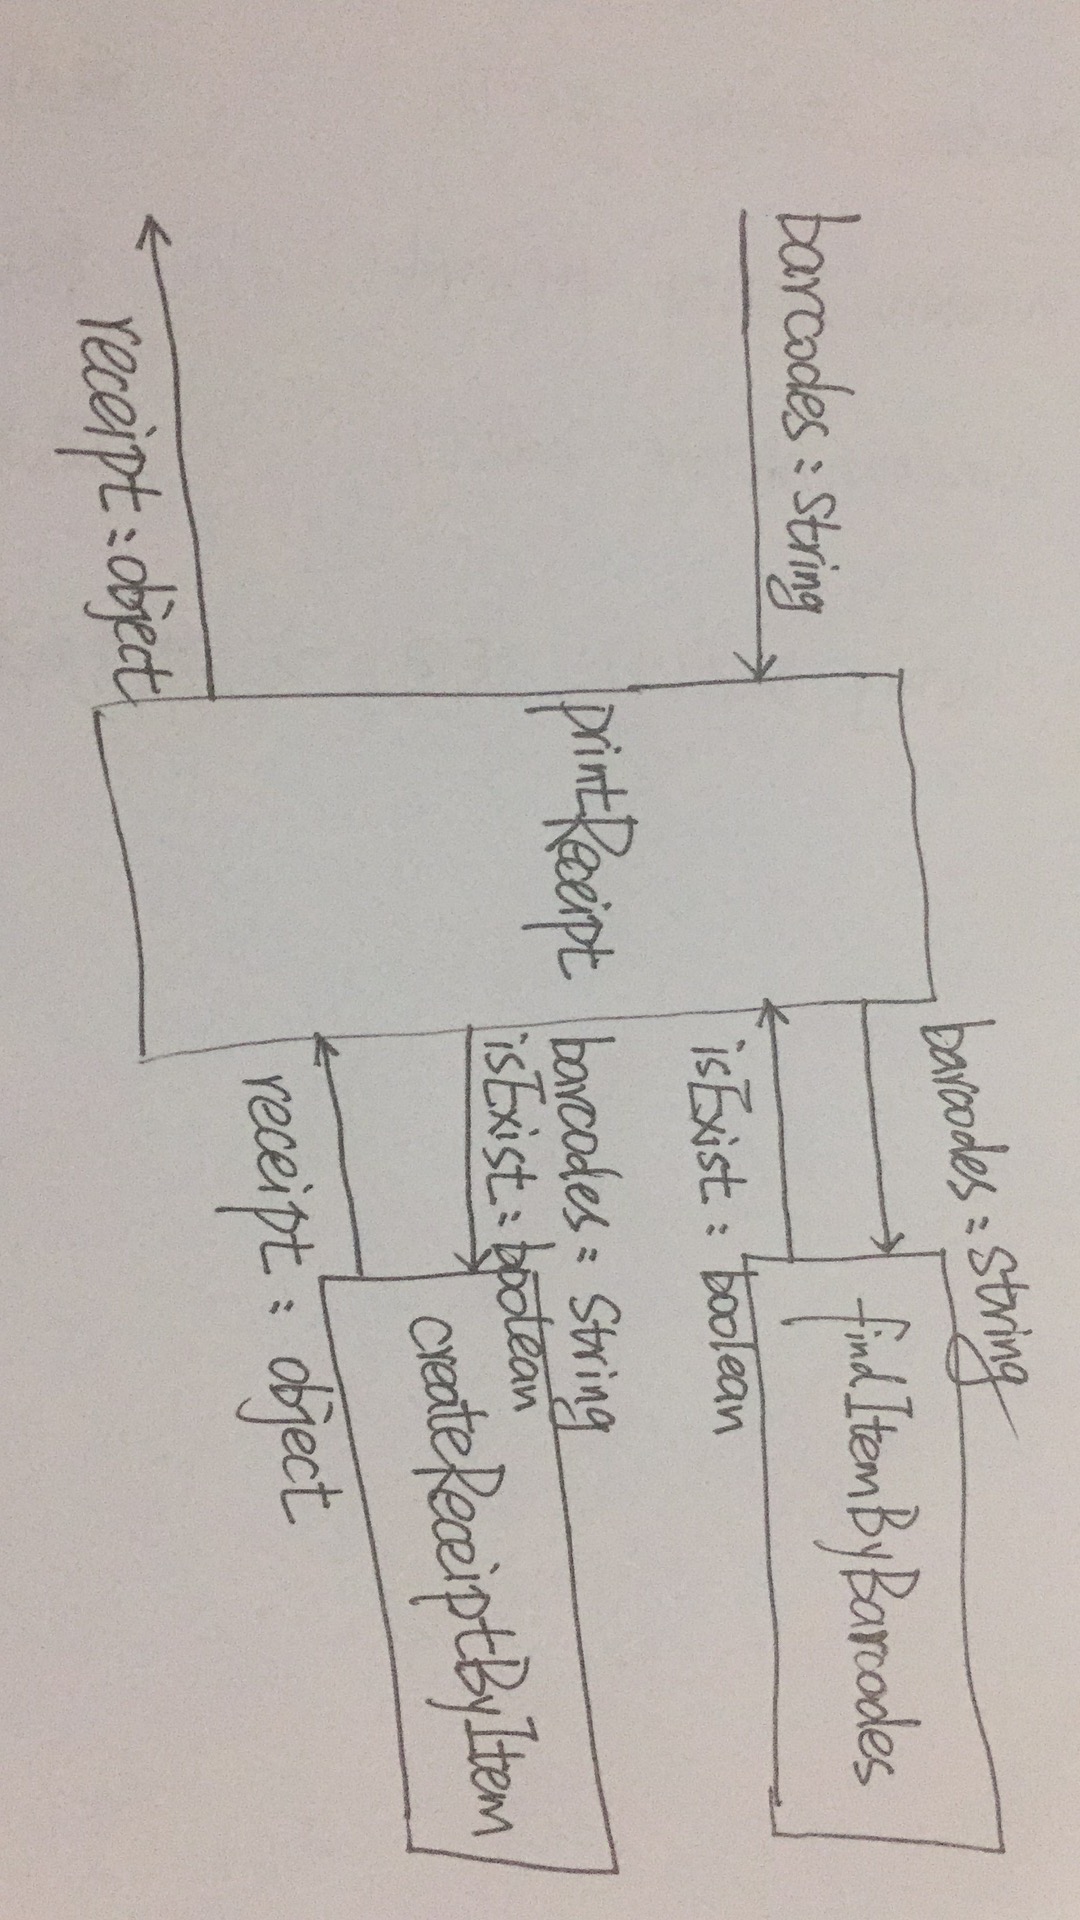 barcodes : String
printReceipt
receipt : object
barcodes : String
findItemByBarcodes
isExist : boolean
barcodes : String
isExist : boolean
createReceiptByItem
receipt : object